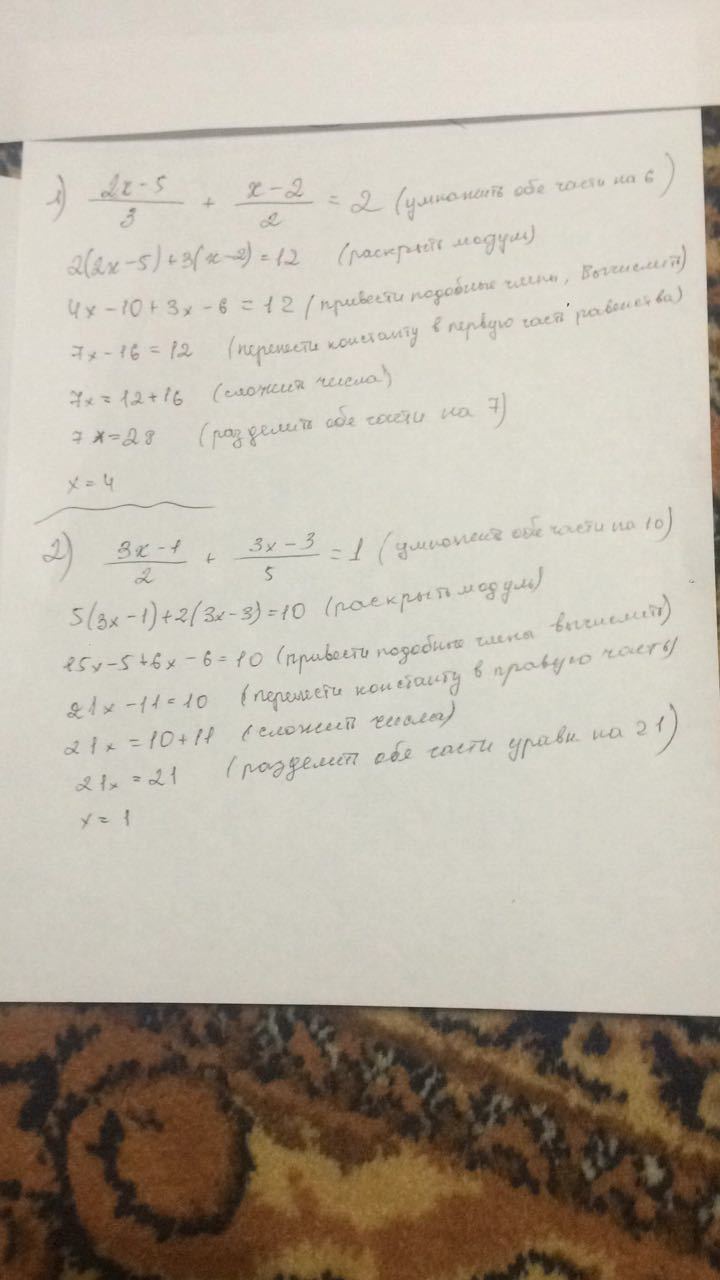 1) (2x-5)/3 + (x-2)/2 = 2 (умножить обе части на 6)
2(2x-5)+3(x-2)=12 (раскрыть модум)
4x-10+3x-6=12 (привести подобные члены, вычислить)
7x-16=12 (перенести константу в первую часть равенства)
7x=12+16 (сложить числа)
7x=28 (разделить обе части на 7)
x=4
2) (3x-1)/2 + (3x-3)/5 = 1 (умножить обе части на 10)
5(3x-1)+2(3x-3)=10 (раскрыть модум)
15x-5+6x-6=10 (привести подобные члены вычислить)
21x-11=10 (перенести константу в правую часть)
21x=10+11 (сложить числа)
21x=21 (разделить обе части уравн на 21)
x=1